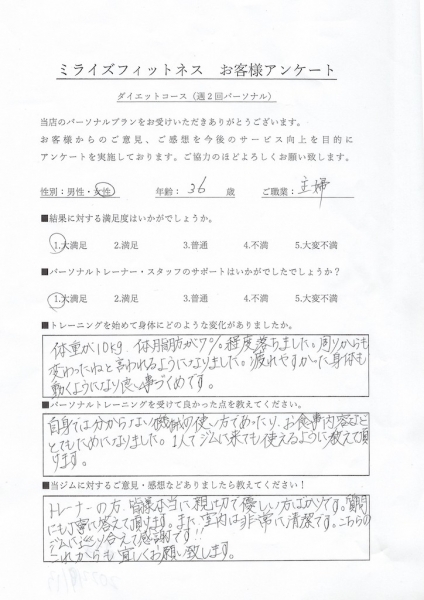 ミライズフィットネス お客様アンケート
ダイエットコース（週２回パーソナル）
当店のパーソナルプランをお受けいただきありがとうございます。
お客様からのご意見、ご感想を今後のサービス向上を目的に
アンケートを実施しております。ご協力のほどよろしくお願い致します。
性別：男性・女性 年齢：36 歳 ご職業：主婦
■結果に対する満足度はいかがでしょうか。
1.大満足 2.満足 3.普通 4.不満 5.大変不満
■パーソナルトレーナー・スタッフのサポートはいかがでしたでしょうか？
1.大満足 2.満足 3.普通 4.不満 5.大変不満
■トレーニングを始めて身体にどのような変化がありましたか。
体重が10kg、体脂肪が7%程度落ちました。周りからも
変わったねと言われるようになりました。疲れやすかった身体も
動くようになり良い事づくめです。
■パーソナルトレーニングを受けて良かった点を教えてください。
自身では分からない機械の使い方であったり、お食事内容など
とてもためになりました。1人でジムに来ても使えるように教えて頂
けます。
■当ジムに対するご意見・感想などありましたら教えてください！
トレーナーの方、皆様本当に親切で優しい方ばかりです。質問
にも丁寧に答えて頂けます。また、室内は非常に清潔です。こちらの
ジムに巡り合えて感謝です!!
これからも宜しくお願い致します。